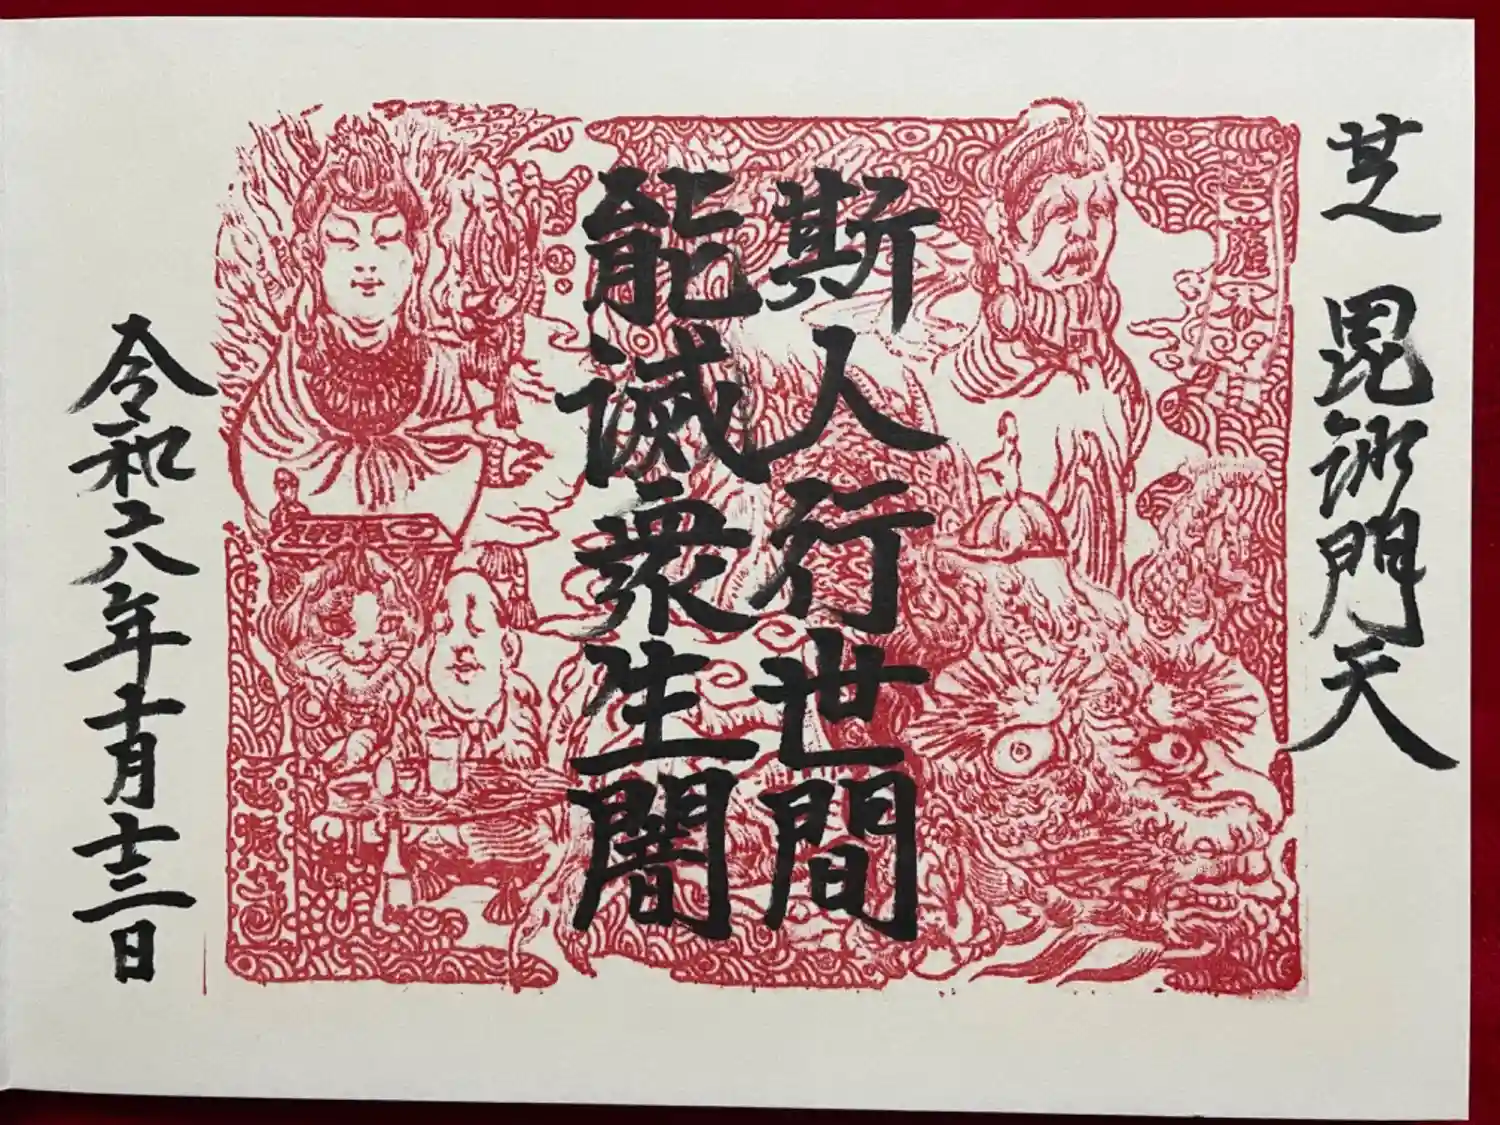 芝 毘沙門天
斯人行世間
能滅衆生闇
令和六年十一月十三日